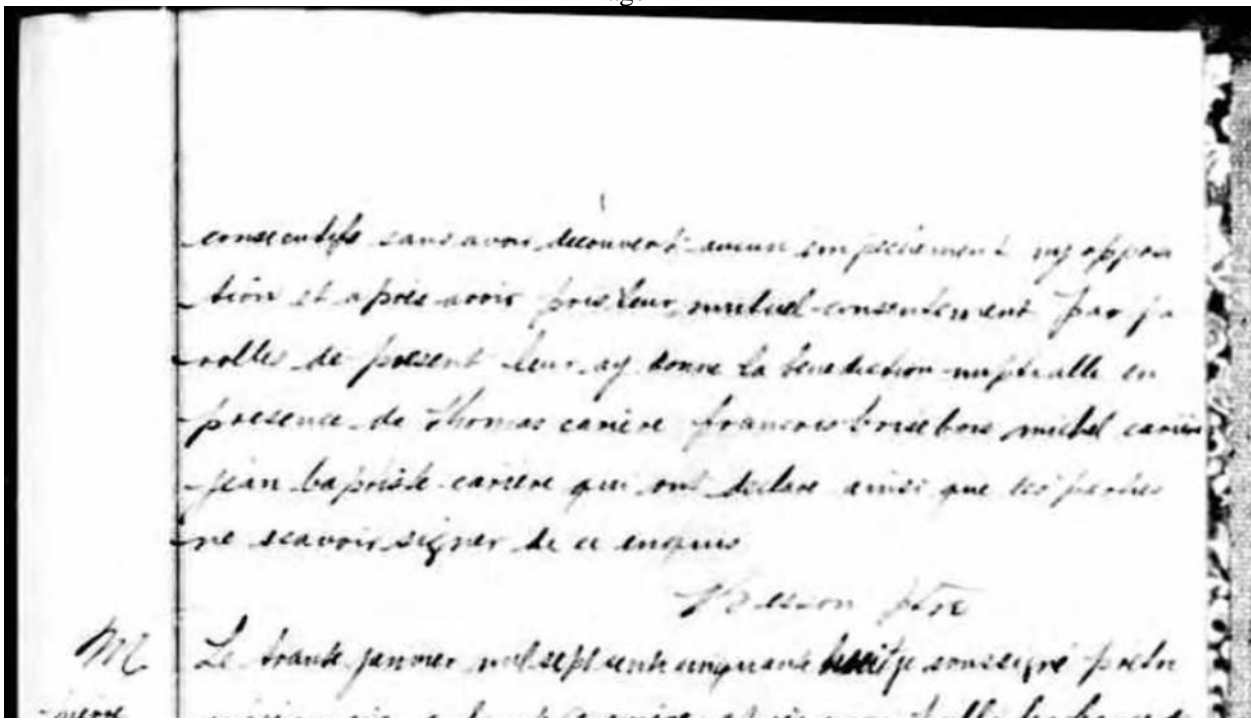 consecutifs sans avoir decouvert aucun empechement ny opposi
tion et apres avoir pris leur mutuel consentement par pa
rolles de present leur ay donne la benediction nuptialle en
presence de thomas cariere francois boisebois michel cariere
jean baptiste cariere qui ont declare ainsi que les parties
ne scavoir signer de ce enquis
Besson ptre
M Le trante janvier mil sept cents cinquante huit je soussigné pretre
pierre